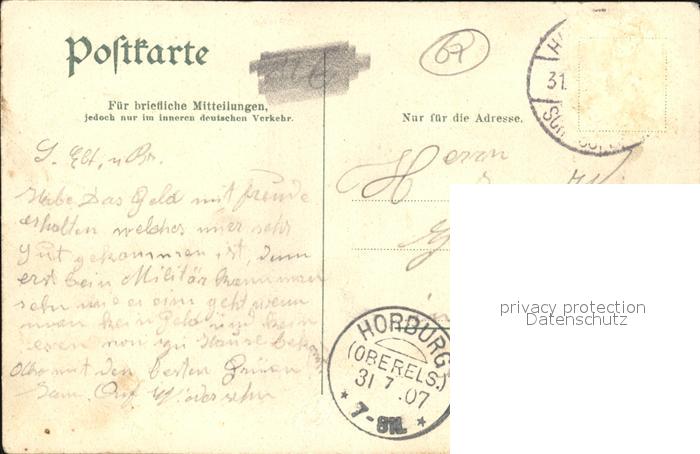 Postkarte
67
Für briefliche Mitteilungen,
jedoch nur im inneren deutschen Verkehr.
Nur für die Adresse.
31.
Herrn
Habe das Geld mit freude
erhalten welches mir sehr
gut gekommen ist, denn
erst bein Militär kann man
sehn wie es eim geht wenn
man kein Geld und kein
essen von zu Hause bek
Also mit den besten Grüßen
Auf Wiedersehn
HORBURG
(OBERELS.)
31 7 .07
7-8N.
privacy protection
Datenschutz